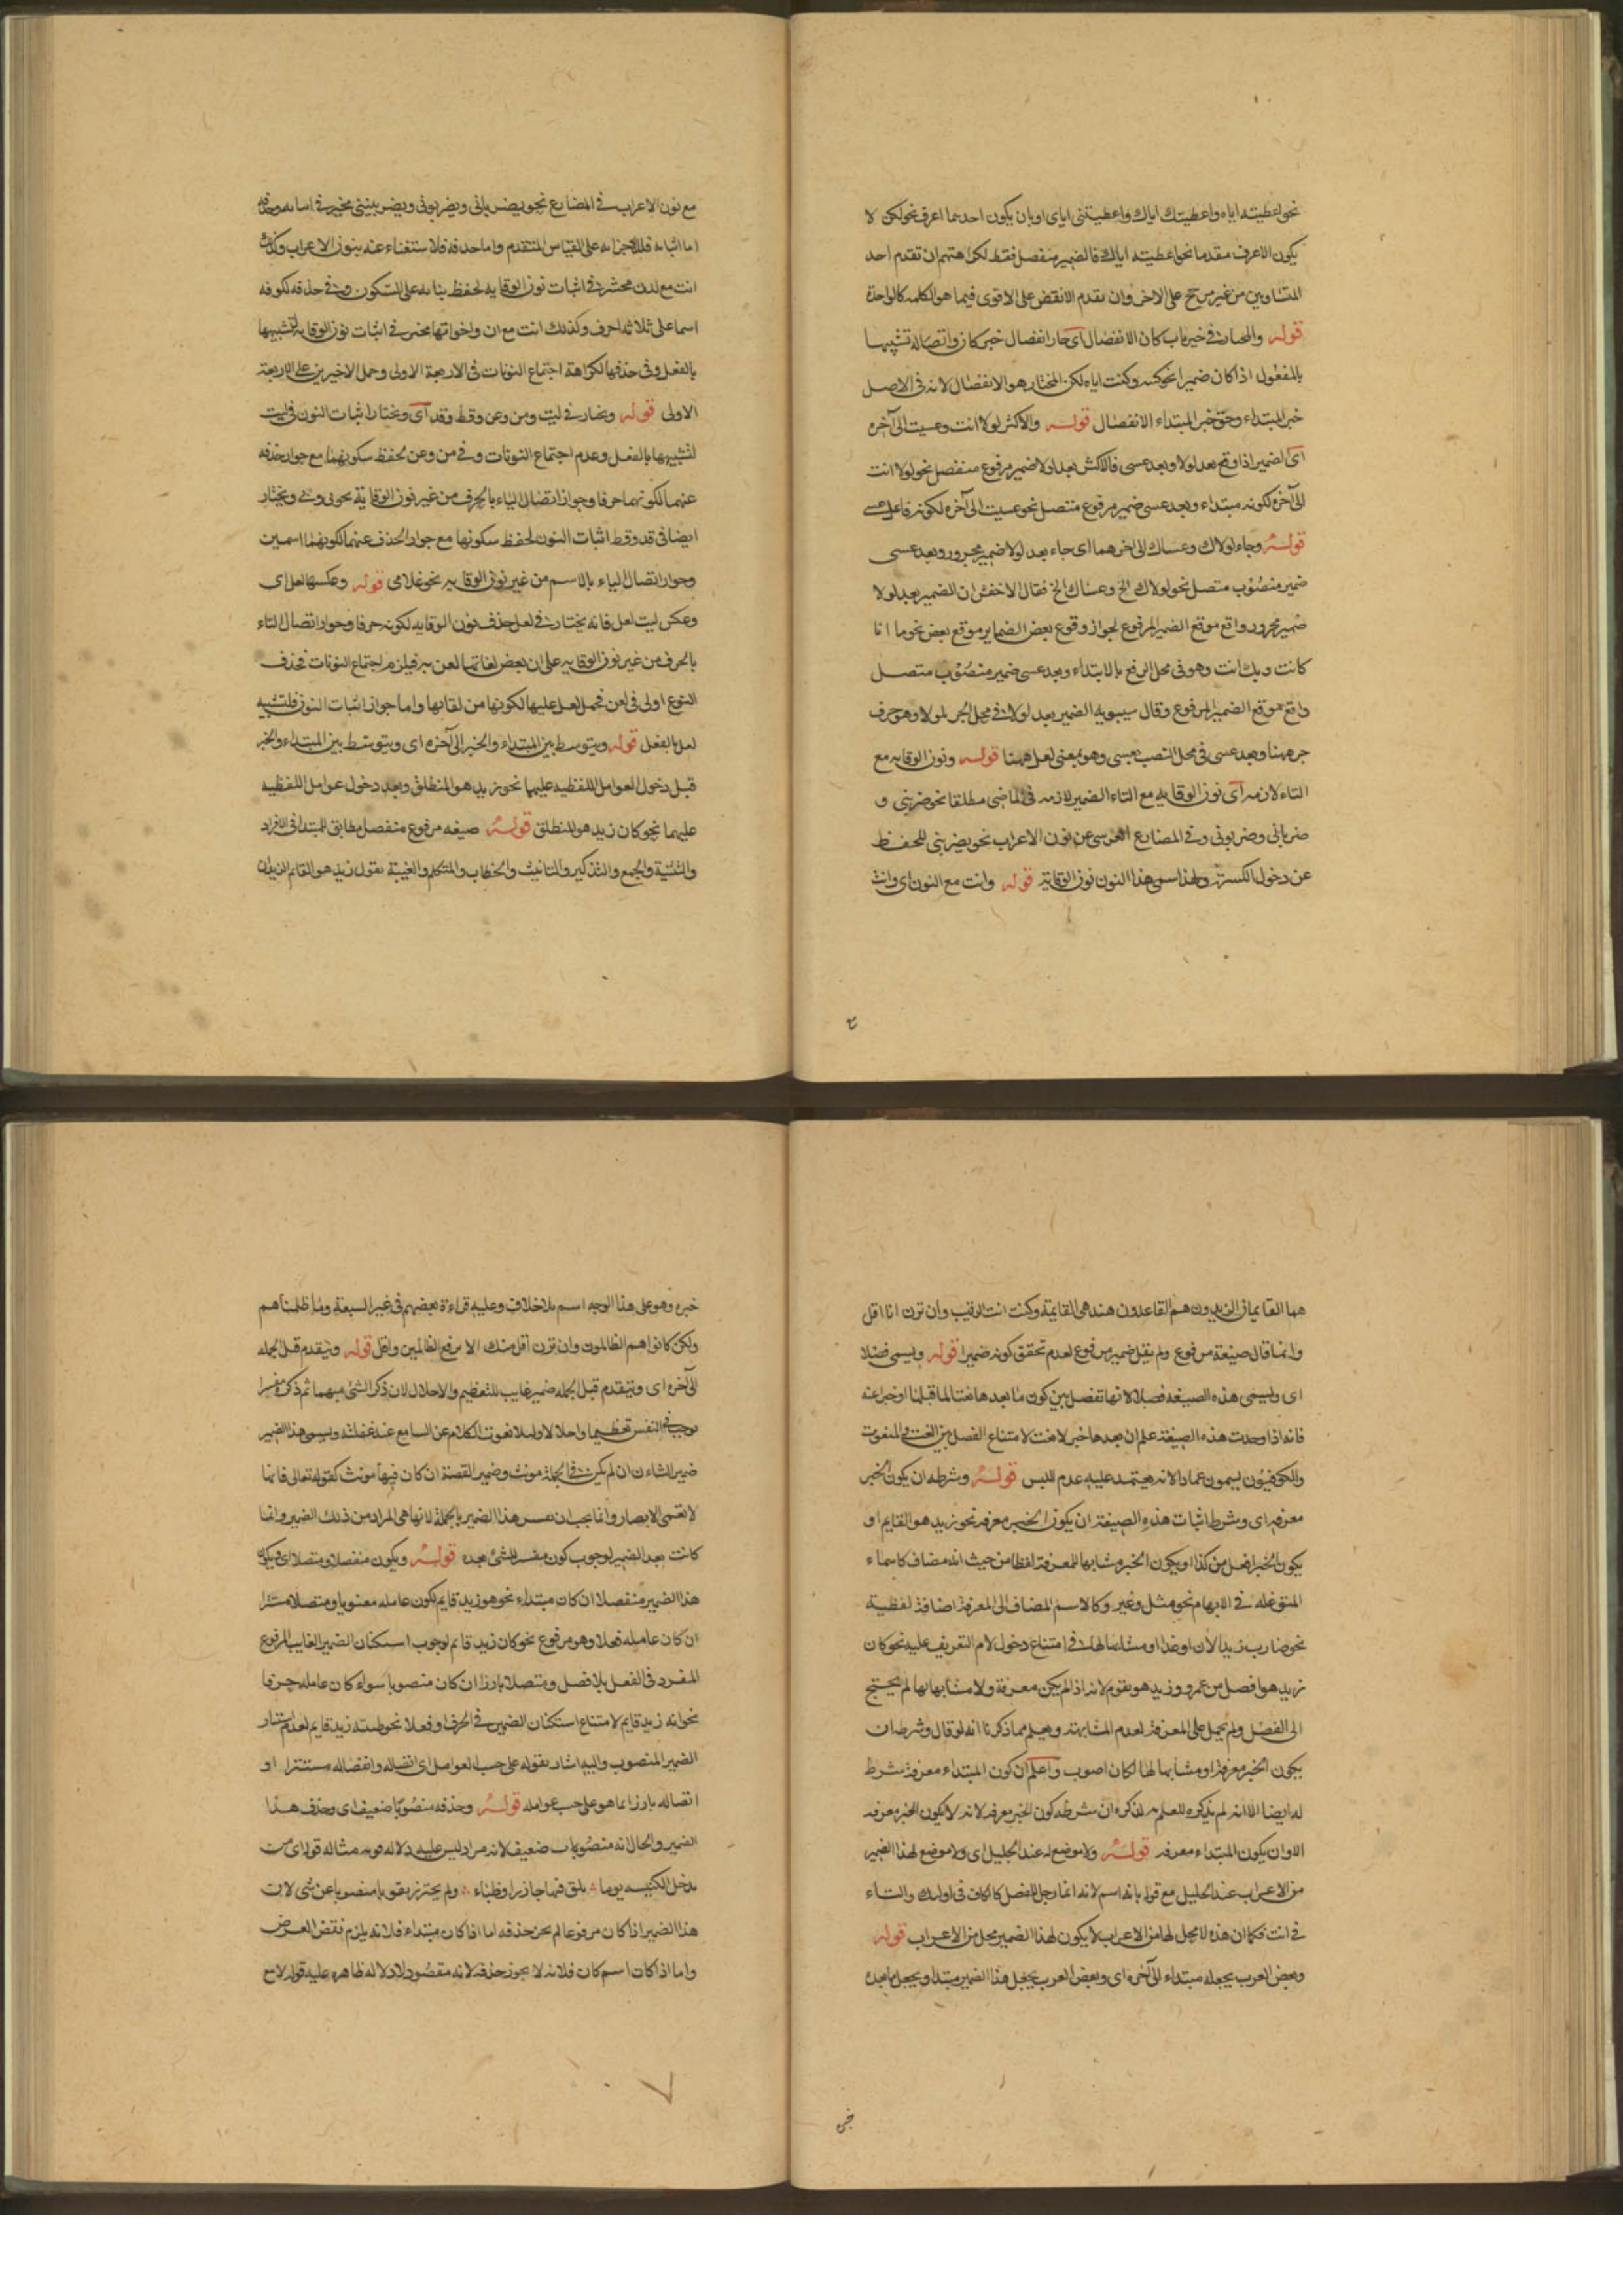 نحو اعطيته اياه واعطيتك اياك واعطيتنى اياى او بان يكون احدهما اعرف نحو لكن لا
يكون الاعرف مقدما نحو اعطيته اياك فالضمير منفصل فقط لكراهتهم ان تقدم احد
المتساويين من غير مرجح على الاخر وان تقدم الانقص على الاقوى فيما هو كالكلمة الواحدة
قوله والمختار فى خبر باب كان الانفصال اى جاز انفصال خبر كان واتصاله تشبيها
بالمفعول اذا كان ضميرا نحو كنته وكنت اياه لكن المختار هو الانفصال لانه فى الاصل
خبر المبتداء وحق خبر المبتداء الانفصال قوله والاكثر لولا انت وعسيت الى آخره
اى الضمير اذا وقع بعد لولا وبعد عسى فالاكثر بعد لولا ضمير مرفوع منفصل نحو لولا انت
الى آخره لكونه مبتداء وبعد عسى ضمير مرفوع متصل نحو عسيت الى آخره لكونه فاعل عسى
قوله وجاء لولاك وعساك الى آخرهما اى جاء بعد لولا ضمير مجرور وبعد عسى
ضمير منصوب متصل نحو لولاك الخ وعساك الخ فقال الاخفش ان الضمير بعد لولا
ضمير مجرور واقع موقع الضمير المرفوع لجواز وقوع بعض الضماير موقع بعض نحو ما انا
كانت وبك انت وهو فى محل الرفع بالابتداء وبعد عسى ضمير منصوب متصل
واقع موقع الضمير المرفوع وقال سيبويه الضمير بعد لولا فى محل الجر بلولا وهو حرف
جر ههنا وبعد عسى فى محل النصب بعسى وهو بمعنى لعل ههنا قوله ونون الوقايه مع
التاء لازمه اى نون الوقايه مع التاء الضمير لازمه فى الماضى مطلقا نحو ضربنى و
ضربانى وضربونى وفى المضارع العرى عن نون الاعراب نحو يضربنى للحفظ
عن دخول الكسرة ولهذا سمى هذا النون نون الوقاية قوله وانت مع النون اى وانت
مع نون الاعراب فى المضارع نحو يضربانى ويضربوننى ويضربيننى مخير فى اثباته وحذفه
اما اثباته فلاجرائه على القياس المتقدم واما حذفه فلاستغناء عنه بنون الاعراب وكذلك
انت مع لدن مخير فى اثبات نون الوقايه لحفظ بنائه على السكون وفى حذفه لكونه
اسما على ثلاثة احرف وكذلك انت مع ان واخواتها مخير فى اثبات نون الوقايه لتشبيهها
بالفعل وفى حذفها لكراهة اجتماع النونات فى الاربعة الاولى وحمل الاخيرين على الاربعة
الاولى قوله ويختار فى ليت ومن وعن وقط وقد اى ويختار اثبات النون فى ليت
لتشبيهها بالفعل وعدم اجتماع النونات وفى من وعن لحفظ سكونهما مع جواز حذفه
عنهما لكونهما حرفا وجواز اتصال الياء بالحرف من غير نون الوقاية نحو بى وفى ويختار
ايضا فى قد وقط اثبات النون لحفظ سكونها مع جواز الحذف عنهما لكونهما اسمين
وجواز اتصال الياء بالاسم من غير نون الوقايه نحو غلامى قوله وعكسها لعل اى
وعكس ليت لعل فانه يختار فى لعل حذف نون الوقايه لكونه حرفا وجواز اتصال التاء
بالحرف من غير نون الوقايه على ان بعض لغاتها لعن به فيلزم اجتماع النونات فحذف
النوع اولى فى لعن فحمل لعل عليها لكونها من لغاتها واما جواز اثبات النون فلتشبيه
لعل بالفعل قوله ويتوسط بين المبتداء والخبر الى آخره اى ويتوسط بين المبتداء والخبر
قبل دخول العوامل اللفظيه عليهما نحو زيد هو المنطلق وبعد دخول عوامل اللفظيه
عليهما نحو كان زيد هو المنطلق قوله صيغه مرفوع منفصل مطابق للمبتدا فى الافراد
والتثنية والجمع والتذكير والتانيث والخطاب والمتكلم والغيبة نقول زيد هو القايم الزيدان
هما القايمان الزيدون هم القاعدون هند هى القايمة وكنت انت الرقيب وان ترن انا اقل
وانما قال صيغة مرفوع ولم يقل ضمير مرفوع لعدم تحقق كونه ضميرا قوله ويسمى فصلا
اى ويسمى هذه الصيغه فصلا لانها تفصل بين كون ما بعدها نعتا لما قبلها او خبرا عنه
فانه اذا وجدت هذه الصيغة علم ان بعدها خبر لا نعت لامتناع الفصل بين النعت والمنعوت
والكوفيون يسمون عمادا لانه يعتمد عليه عدم للبس قوله وشرطه ان يكون الخبر
معرفه اى وشرط اثبات هذه الصيغة ان يكون الخبر معرفه نحو زيد هو القايم او
يكون الخبر افعل من كذا او يكون الخبر مشابها للمعرفة لفظا من حيث انه مضاف كاسماء
المتوغله فى الابهام نحو مثل وغير وكالاسم المضاف الى المعرفة اضافة لفظية
نحو ضارب زيد الان او غدا او مشابها لها فى امتناع دخول لام التعريف عليه نحو كان
زيد هو افضل من عمرو وزيد هو يقوم لانه اذا لم يكن معرفة ولا مشابها بها لم يحتج
الى الفصل ولم يحمل على المعرفة لعدم المشابهة ويعلم مما ذكرنا انه لو قال وشرطه ان
يكون الخبر معرفة او مشابها لها لكان اصوب واعلم ان كون المبتداء معرفة شرط
له ايضا الا انه لم يذكره للعلم به لذكره ان شرطه كون الخبر معرفه لانه لا يكون الخبر معرفه
الا وان يكون المبتداء معرفه قوله ولا موضع له عند الخليل اى ولا موضع لهذا الضمير
من الاعراب عند الخليل مع قوله بانه اسم لانه انما رجل للفصل كالكاف فى اولئك والتاء
فى انت فكما ان هذه لا محل لها من الاعراب لا يكون لهذا الضمير محل من الاعراب قوله
وبعض العرب يجعله مبتداء الى آخره اى وبعض العرب يجعل هذا الضمير مبتدا ويجعل ما بعده
خبره
خبره وهو على هذا الوجه اسم بلا خلاف وعليه قراءة بعضهم فى غير السبعة وما ظلمناهم
ولكن كانوا هم الظالمون وان ترن اقل منك الا برفع الظالمين واقل قوله ويتقدم قبل الجمله
الى آخره اى ويتقدم قبل الجمله ضمير غايب للتعظيم والاجلال لان ذكر الشئ مبهما ثم ذكره مفسرا
يوجب فى النفس تعظيما واجلالا ولئلا يفوت الكلام عن السامع عند غفلته ويسمى هذا الضمير
ضمير الشان ان لم يكن فى الجملة مونث وضمير القصة ان كان فيها مونث كقوله تعالى فانها
لا تعمى الابصار وانما يجب ان يفسر هذا الضمير بالجملة لانها هى المراد من ذلك الضمير وانما
كانت بعد الضمير لوجوب كون مفسر للشئ بعده قوله ويكون منفصلا ومتصلا اى ويكون
هذا الضمير منفصلا ان كان مبتداء نحو هو زيد قايم لكون عامله معنويا ومتصلا مستترا
ان كان عامله فعلا وهو مرفوع نحو كان زيد قايم لوجوب استكنان الضمير الغايب المرفوع
المفرد فى الفعل بلا فصل ومتصلا بارزا ان كان منصوبا سواء كان عامله حرفا
نحو انه زيد قايم لامتناع استكنان الضمير فى الحرف او فعلا نحو ظننته زيد قايم لعدم استتار
الضمير المنصوب واليه اشار بقوله على حسب العوامل اى اتصاله وانفصاله مستترا او
اتصاله بارزا انما هو على حسب عوامله قوله وحذفه منصوبا ضعيف اى وحذف هذا
الضمير والحال انه منصوبا ضعيف لانه مراد ليس عليه دلاله مثاله قوله ان من
يدخل الكنيسه يوما يلق فيها جاذرا وظباء ولم يحترز بقوله منصوبا عن شى لان
هذا الضمير اذا كان مرفوعا لم يجز حذفه اما اذا كان مبتداء فلانه يلزم نقض الغرض
واما اذا كان اسم كان فلانه لا يجوز حذفه لانه مقصود لا دلاله ظاهره عليه قوله لا مع